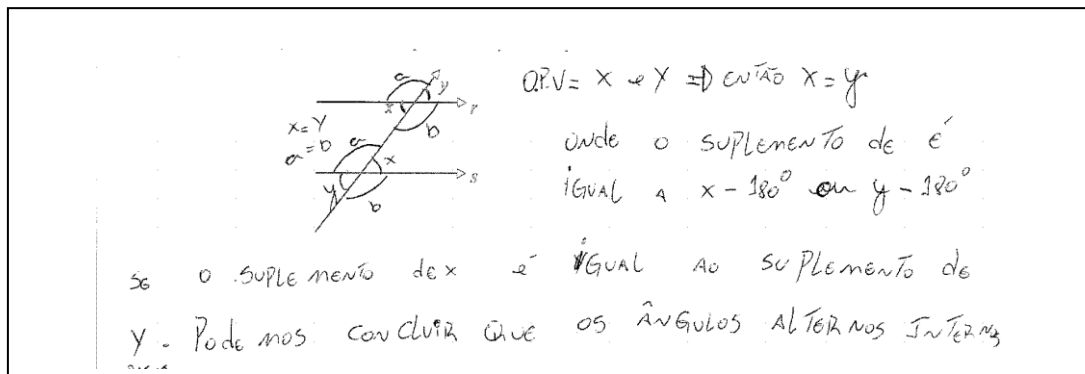 a y
x r
b
x=y
a=b
a x
s
y b
O.P.V= X e Y => ENTÃO X=y
onde o SUPLEMENTO de É
iGUAL A x-180° ou y-180°
SE O SUPLEMENTO dEX é iGUAL AO SUPLEMENTO dE
Y. PodEmos CONCLUIR QUE OS ÂNGULOS ALTERNOS INTERNOS